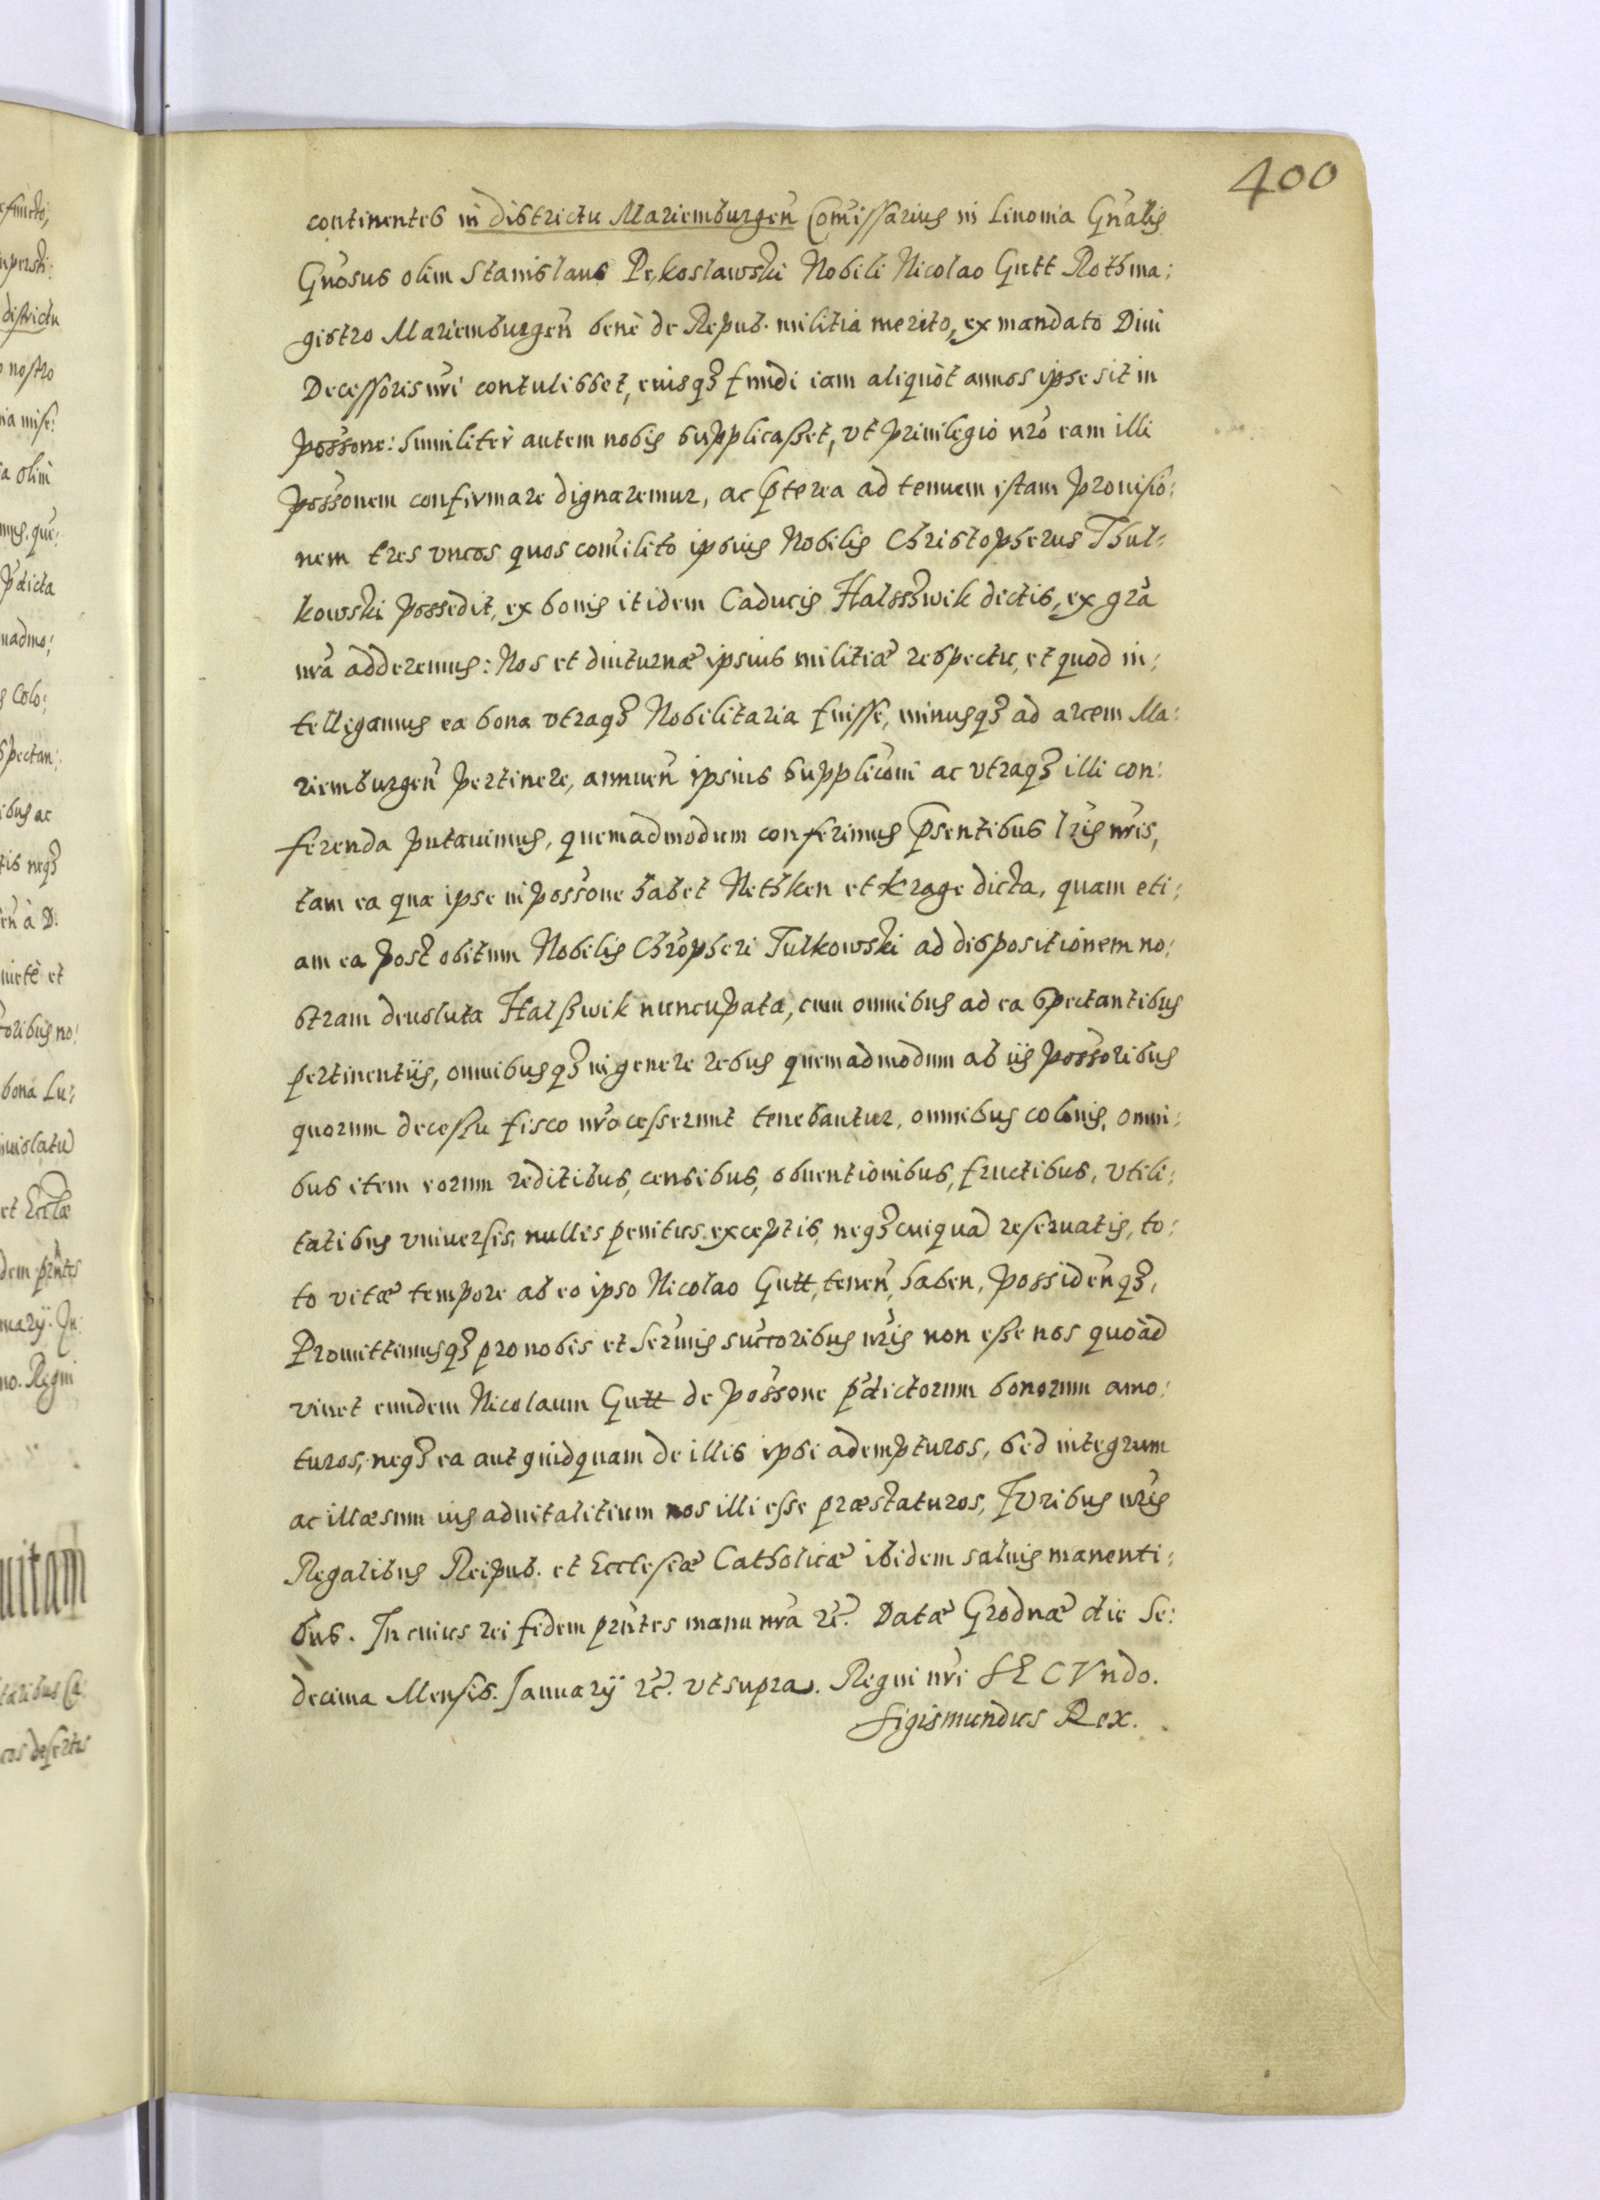 400
continentes in districtu Mariemburgeñ Com̃issarius in Liuonia Gñalis
Gñosus olim Stanislaus Pękoslawski Nobili Nicolao Gutt Rothma:
gistro Mariemburgeñ benè de Repub. militia merito, ex mandato Diui
Decessoris nr̃i contulisset, eiusq3 fundi iam aliquot annos ipse sit in
poss̃one: humiliter autem nobis supplicasset, vt priuilegio nr̃o eam illi
poss̃onem confirmare dignaremur, ac p̃terea ad tenuem istam prouisio:
nem tres vncos quos com̃ilito ipsius Nobilis Christopherus Thul:
kowski possedit, ex bonis itidem Caducis Halsswik dictis, ex gr̃a
nr̃a adderemus: Nos et diuturnæ ipsius militiæ respectu, et quod in:
telligamus ea bona vtraq3 Nobilitaria fuisse, minusq3 ad arcem Ma:
riemburgeñ pertinere, annueñ ipsius supplic̃oni ac vtraq3 illi con:
ferenda putauimus, quemadmodum conferimus p̃sentibus lr̃is nr̃is,
tam ea quæ ipse in poss̃one habet Nethken et Krage dicta, quam eti:
am ea post obitum Nobilis Chr̃opheri Tulkowski ad dispositionem no:
stram deuoluta Halswik nuncupata, cum omnibus ad ea spectantibus
pertinentijs, omnibusq3 in genere rebus quemadmodum ab iis poss̃oribus
quorum decessu fisco nr̃o cesserunt tenebantur, omnibus colonis, omni:
bus item eorum reditibus, censibus, obuentionibus, fructibus, vtili:
tatibus vniuersis, nullis penitus exceptis, neq3 cuiquã reseruatis, to:
to vitæ tempore ab eo ipso Nicolao Gutt, teneñ, haben, possideñq3,
Promittimusq3 pro nobis et Ser̃mis succ̃oribus nr̃is non esse nos quoàd
viuet eundem Nicolaum Gutt de poss̃one p̃dictorum bonorum amo:
turos, neq3 ea aut quidquam de illis ipsi adempturos, sed integrum
ac illæsum ius aduitalitium nos illi esse præstaturos, Iuribus nr̃is
Regalibus Reipub. et Ecclesiæ Catholicæ ibidem saluis manenti:
bus. In cuius rei fidem pñtes manu nr̃a &c̃. Datæ Grodnæ die Se:
decima Mensis. Ianuarÿ &c̃. vt supra. Regni nr̃i SECVndo.
Sigismundus Rex.